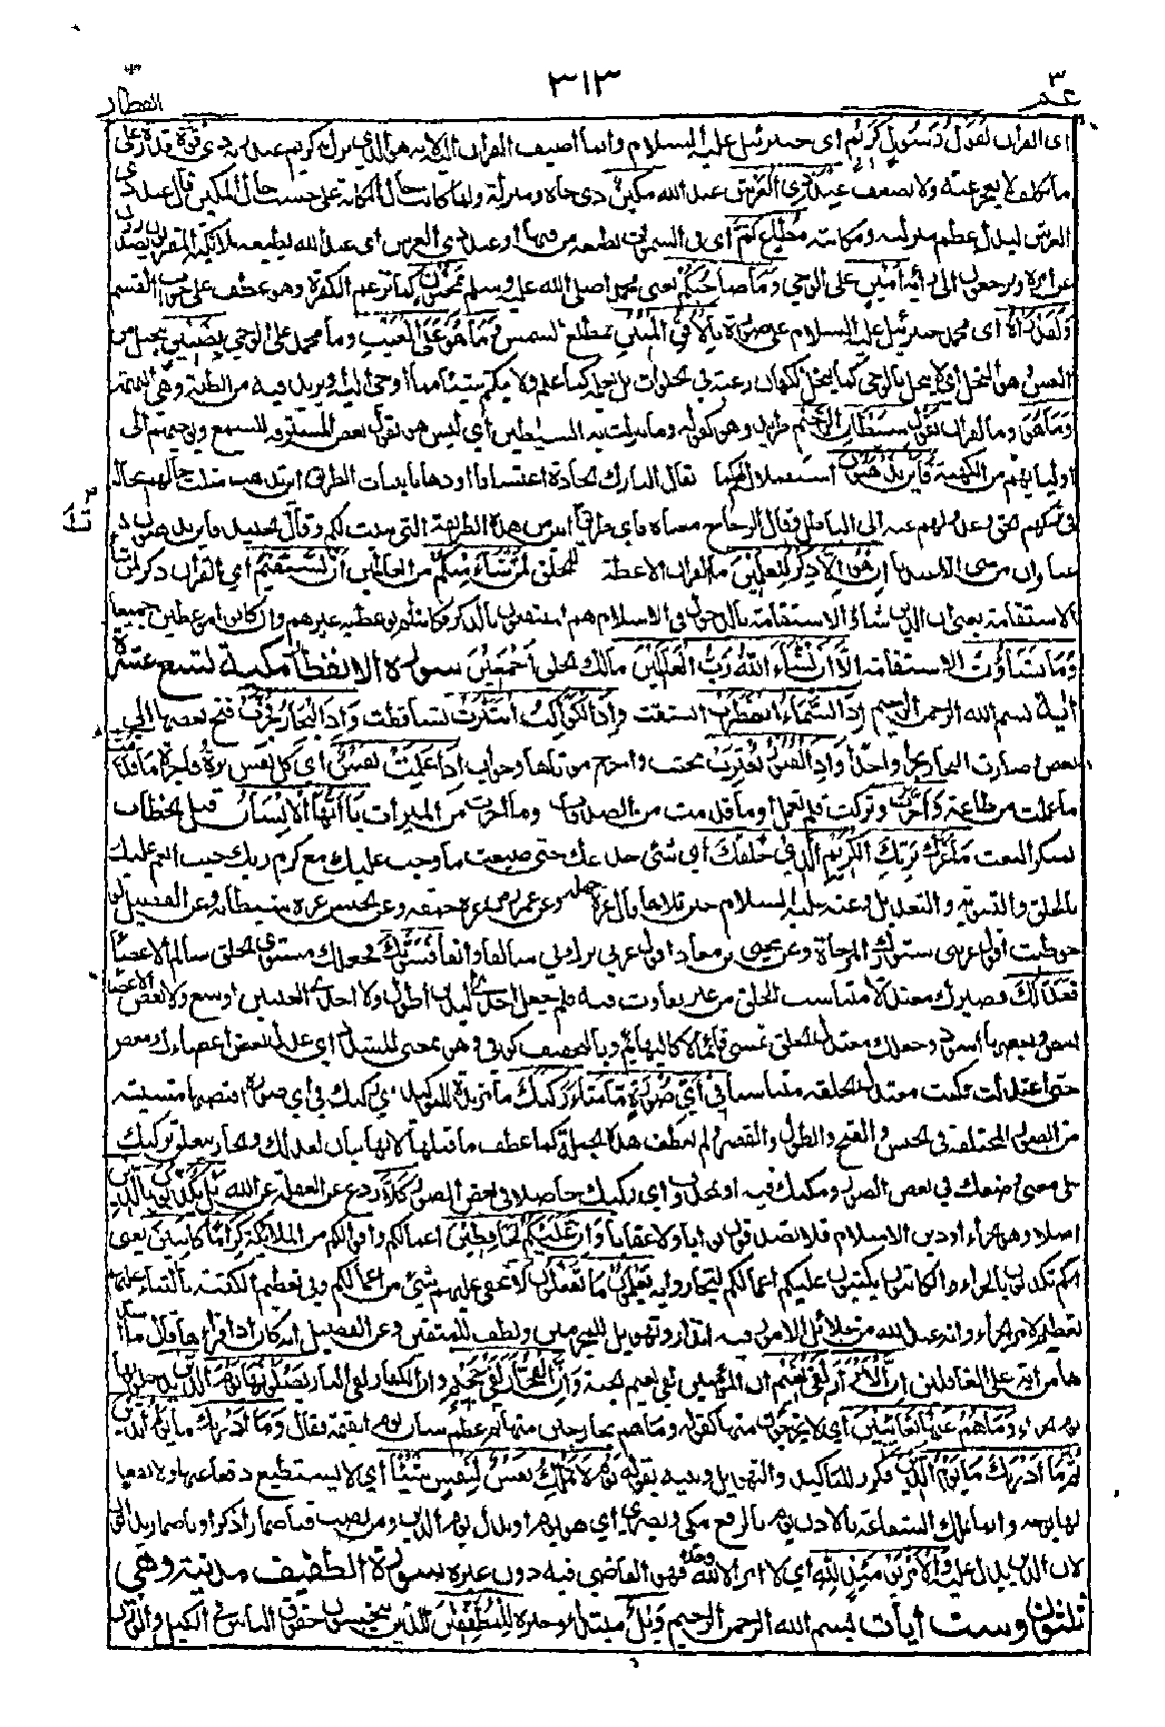 ٣ عم
٣١٣
٣ انفطار
اى القرآن لقول رسول كريم اى جبرئيل عليه السلام وانما اضيف القرآن اليه لانه هو الذي نزل به كريم عند ربه ذى قوة قدرة على
ما يكلف لا يعجز عنه ولا يضعف عند ذي العرش عند الله مكين ذى جاه ومنزلة ولما كانت حال المكانة على حسب حال المكين قال عند ذى
العرش ليدل على عظم منزلته ومكانته مطاع ثم اى فى السموات يطيعه من فيها او عند ذى العرش اى عند الله يطيعه ملائكته المقربون يصدرون
عن امره ويرجعون الى رأيه امين على الوحي وما صاحبكم يعنى محمدا صلى الله عليه وسلم بمجنون كما تزعم الكفرة وهو عطف على جواب القسم
ولقد رآه اى محمد جبرئيل عليه السلام على صورته بالافق المبين بمطلع الشمس وما هو على الغيب وما محمد على الوحي بضنين ببخيل من
الضن وهو البخل اى لا يبخل بالوحي كما يبخل الكهان رغبة فى الحلوان بل يعلمه كما علم ولا يكتم شيئا مما اوحي اليه وبظنين من الظنة وهى التهمة
وما هو وما القرآن بقول شيطان رجيم طريد وهو كقوله وما تنزلت به الشياطين اى ليس هو بقول بعض المسترقة للسمع وبوحيهم الى
اوليائهم من الكهنة فاين تذهبون استضلال لهم كما يقال لتارك الجادة اعتسافا او ذهابا فى بنيات الطريق اين تذهب مثلت حالهم بحاله
فى تركهم الحق وعدولهم عنه الى الباطل وقال الزجاج معناه فاى طريق تسلكون ابين من هذه الطريقة التى بينت لكم وقال الجنيد فاين تذهبون
عنا وان من شىء الا عندنا ان هو الا ذكر للعلمين ما القرآن الا عظة للخلق لمن شاء منكم من العالمين ان يستقيم اى القرآن ذكر لمن شاء
الاستقامة يعنى ان الذين شاؤا الاستقامة بالدخول فى الاسلام هم المنتفعون بالذكر فكانه لم يوعظ به غيرهم وان كانوا موعظين جميعا
وما تشاؤن الاستقامة الا ان يشاء الله رب العلمين مالك الخلق اجمعين سورة الانفطار مكية تسع عشرة
آية بسم الله الرحمن الرحيم اذا السماء انفطرت انشقت واذا الكواكب انتثرت تساقطت واذا البحار فجرت فتح بعضها الى
بعض وصارت البحار بحرا واحدا واذا القبور بعثرت بحثت واخرج موتاها وجواب اذا علمت نفس اى كل نفس برة وفاجرة ما قدمت
ما عملت من طاعة واخرت وتركت فلم تعمل او ما قدمت من الصدقات وما اخرت من الميراث يا ايها الانسان قيل الخطاب
لمنكر البعث ما غرك بربك الكريم الذى خلقك اى شىء خدعك حتى ضيعت ما وجب عليك مع كرم ربك حيث انعم عليك
بالخلق والتسوية والتعديل وعنه عليه السلام حين تلاها قال غره جهله وعن عمر غره حمقه وعن الحسن غره شيطانه وعن الفضيل لو
خوطبت اقول غرتنى ستورك المرخاة وعن يحيى بن معاذ اقول غرنى برك بى سالفا وآنفا فسوىك فجعلك مستوى الخلق سالم الاعضاء
فعدلك فصيرك معتدلا متناسب الخلق من غير تفاوت فيه فلم يجعل احدى اليدين اطول ولا احدى العينين اوسع ولا بعض الاعضاء
ابيض وبعضها اسود وجعلك معتدل الخلق تمشى قائما لا كالبهائم وبالتخفيف كوفى وهو بمعنى المشدد اى عدل بعض اعضاءك ببعض
حتى اعتدلت فكنت معتدل الخلقة متناسبا فى اى صورة ما شاء ركبك ما مزيدة للتوكيد اى ركبك فى اى صورة اقتضها مشيئته
من الصور المختلفة فى الحسن والقبح والطول والقصر ولم تعطف هذه الجملة كما عطف ما قبلها لانها بيان لعدلك والجار يتعلق بركبك
على معنى وضعك فى بعض الصور ومكنك فيه او بمحذوف اى ركبك حاصلا فى بعض الصور كلا ردع عن الغفلة عن الله بل تكذبون بالدين
اصلا وهو الجزاء او دين الاسلام فلا تصدقون ثوابا ولا عقابا وان عليكم لحافظين اعمالكم واقوالكم من الملائكة كراما كاتبين يعنى
انكم تكذبون بالجزاء والكاتبون يكتبون عليكم اعمالكم لتجازوا به يعلمون ما تفعلون لا يخفى عليهم شىء من اعمالكم وفى تعظيم الكتبة بالثناء عليهم
تعظيم لامر الجزاء وانه عند الله من جلائل الامور وفيه انذار وتهويل للمجرمين ولطف للمتقين وعن الفضيل انه كان اذا قرأها قال ما
اشدها من آية على الغافلين ان الابرار لفى نعيم ان المؤمنين لفى نعيم الجنة وان الفجار لفى جحيم وان الكفار لفى النار يصلونها يوم الدين يدخلونها
يوم الجزاء وما هم عنها بغائبين اى لا يخرجون منها كقوله وما هم بخارجين منها ثم عظم شان يوم القيمة فقال وما ادراك ما يوم الدين
ثم ما ادراك ما يوم الدين فكرر للتأكيد والتهويل وبينه بقوله يوم لا تملك نفس لنفس شيئا اى لا يستطيع دفعا عنها ولا نفعا
لها بوجه وانما تملك الشفاعة بالاذن يوم بالرفع مكى وبصرى اى هو يوم او بدل من يوم الدين ومن نصب فباضمار اذكر او باضمار يدانون
لان الدين يدل عليه والامر يومئذ لله اى لا امر الا لله وحده فهو القاضى فيه دون غيره سورة التطفيف مدنية وهى
ثلثون وست آيات بسم الله الرحمن الرحيم ويل مبتدأ وخبره للمطففين الذين يبخسون حقوق الناس فى الكيل والوزن